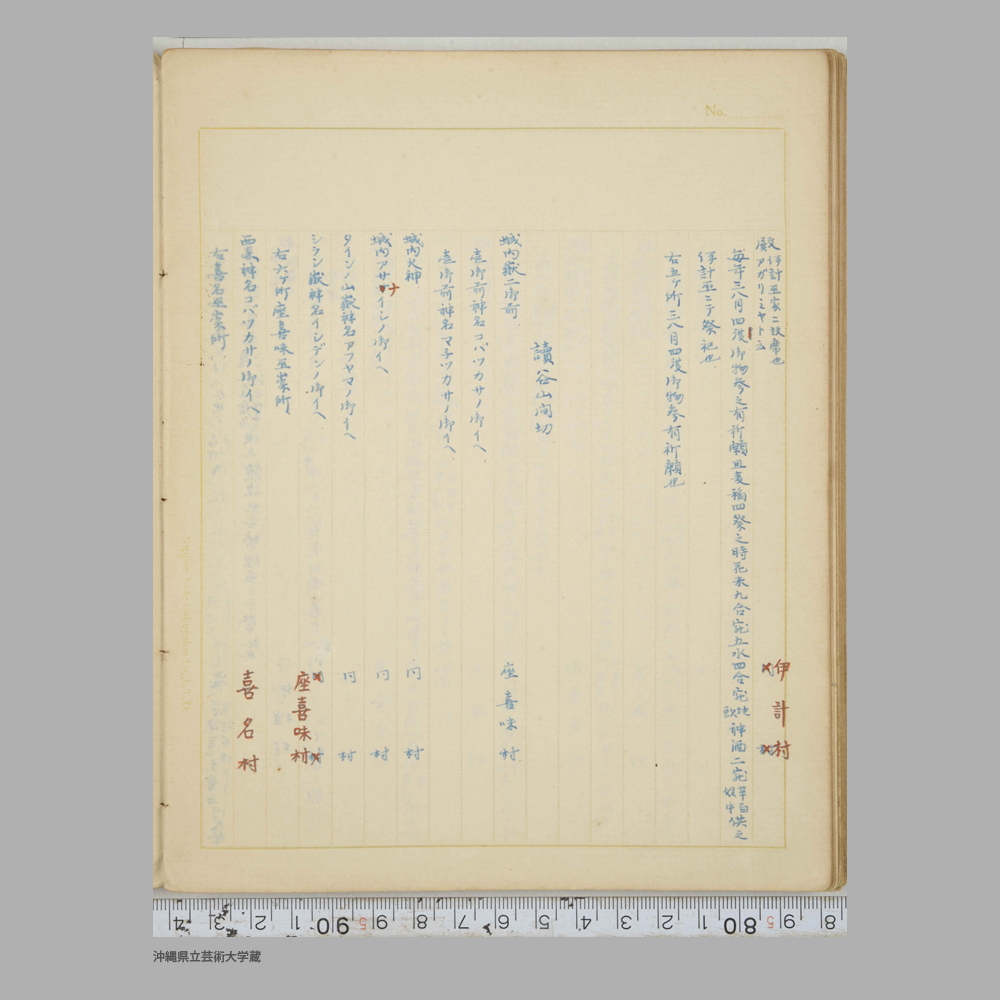 No.
殿 伊計巫家ニ設席也 アガリミヤト云
伊計村
毎年三八月四度御物参之有祈願且麦稲四祭之時花米九合完五水四合完神酒二完 供之
伊計巫ニテ祭祀也
右五ヶ所三八月四度御物参有祈願也
讀谷山間切
城内嶽二御前 座喜味村
壱御前神名コバツカサノ御イベ
壱御前神名マ子ツカサノ御イベ
城内火神 同村
城内アサナイシノ御イベ 同村
タインノ山嶽神名アフヤマノ御イベ 同村
シラン嶽神名イシデンノ御イベ
座喜味村
右六ヶ所座喜味巫崇所
西原神名コバツカサノ御イベ 喜名村
右喜名巫崇所
沖縄県立芸術大学蔵